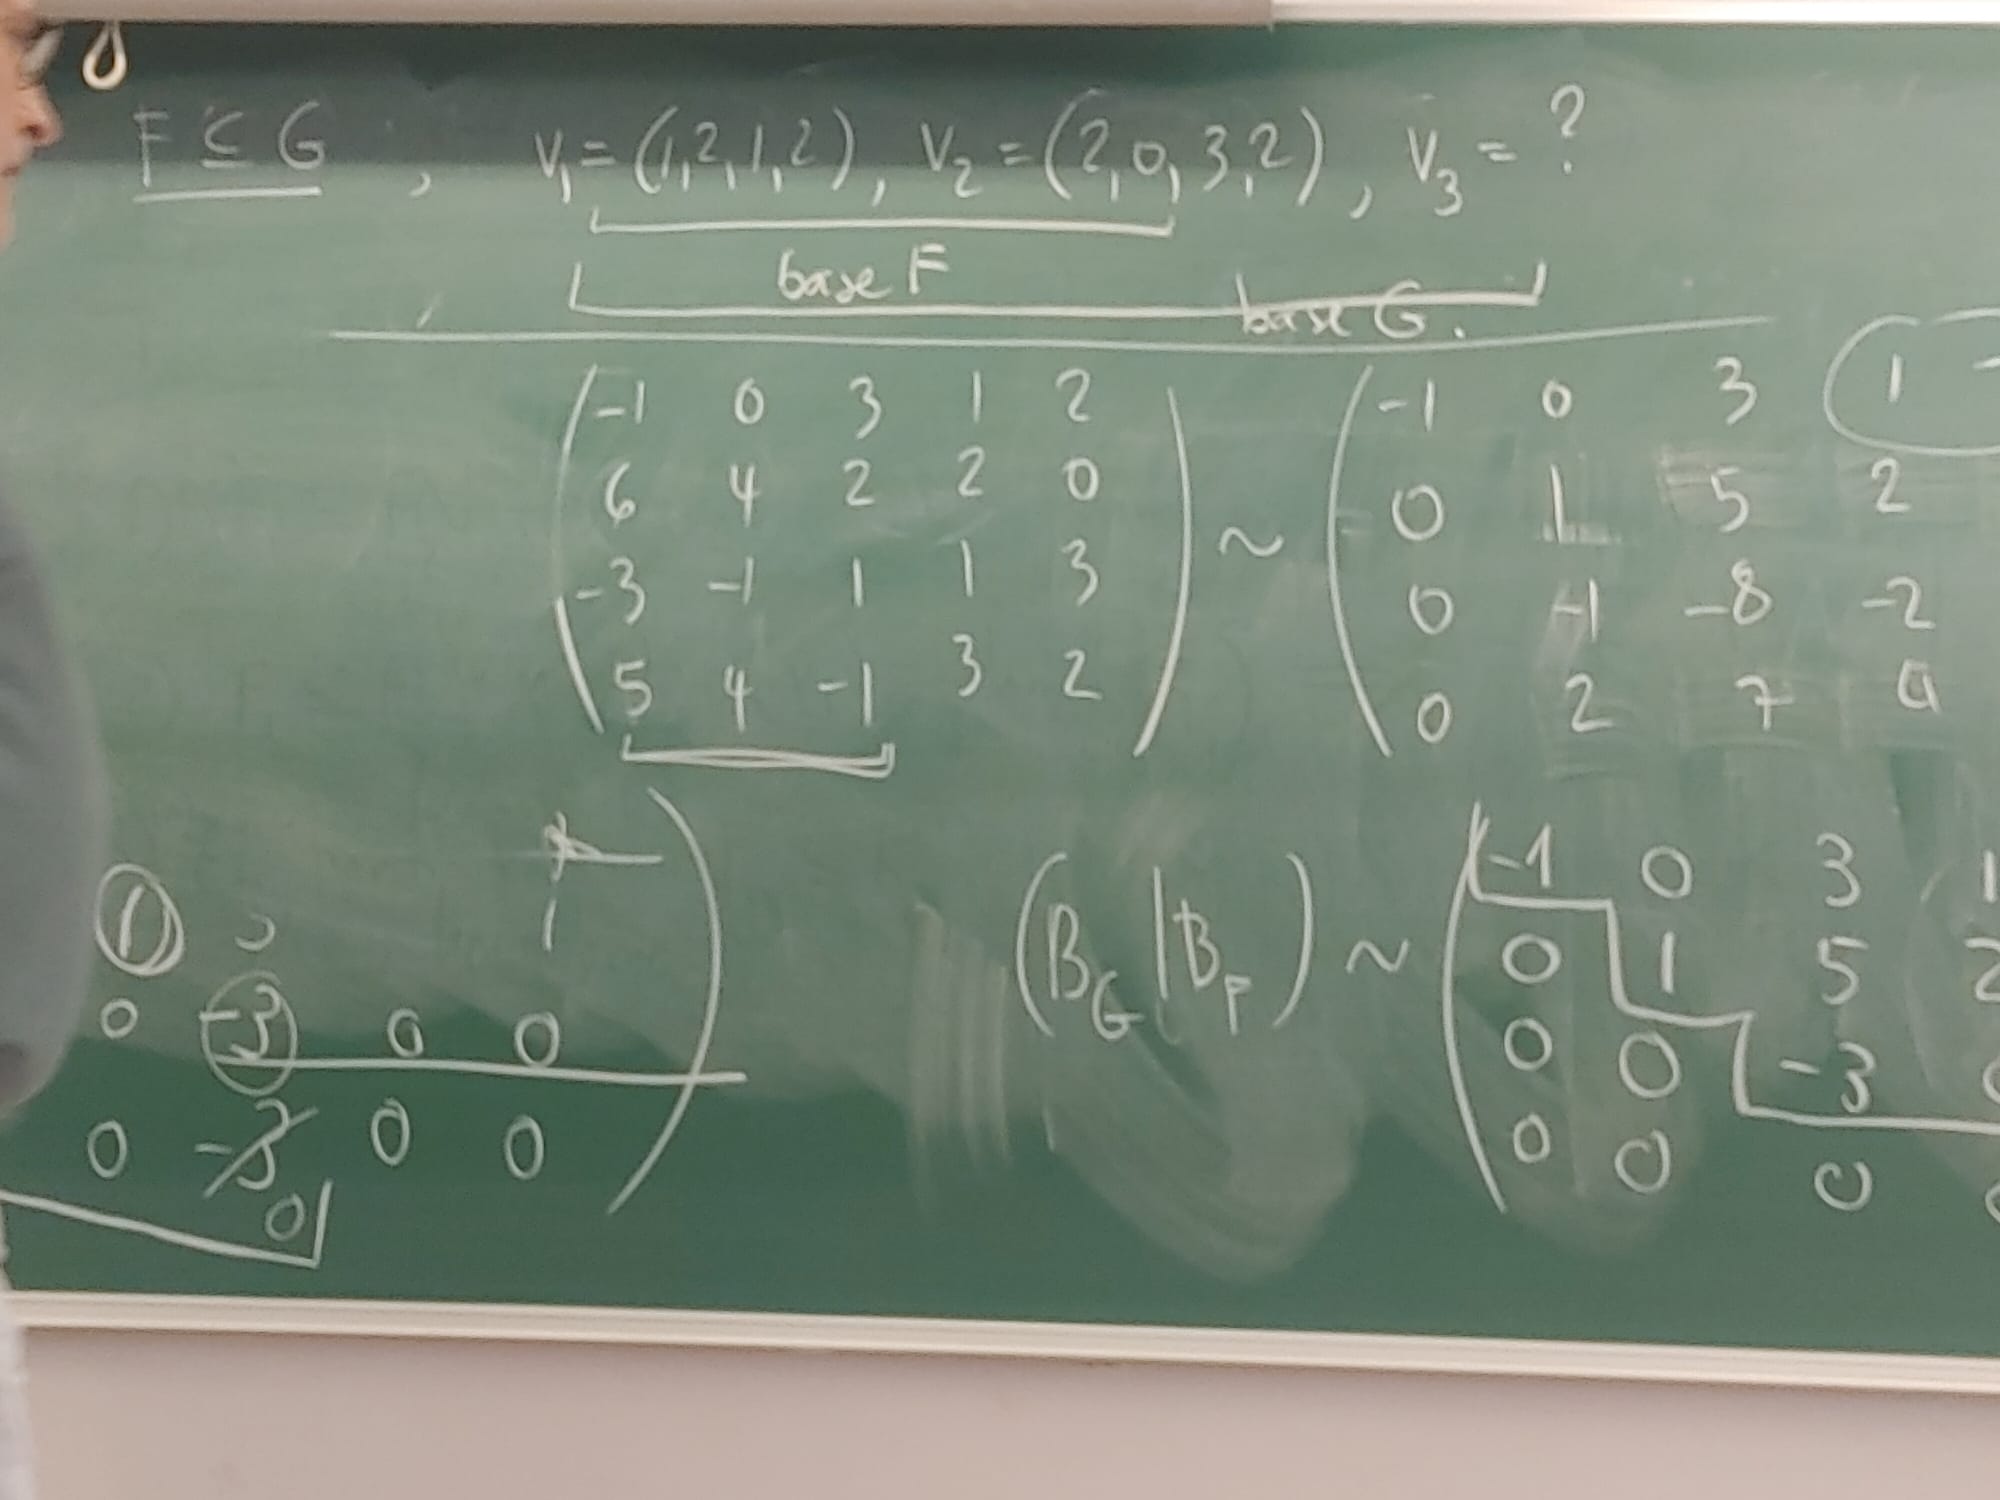 F ⊆ G , v₁ = (1,2,1,2), v₂ = (2,0,3,2), v₃ = ?
base F
base G.
( -1 0 3 1 2 ) ( -1 0 3 1
6 4 2 2 0 0 1 5 2
~
-3 -1 1 1 3 0 -1 -8 -2
5 4 -1 3 2 0 2 7 4
1
0 -3 0 0
0 -3 0 0
0
(B_G | B_F) ~ ( -1 0 3 1
0 1 5 2
0 0 -3
0 0 0